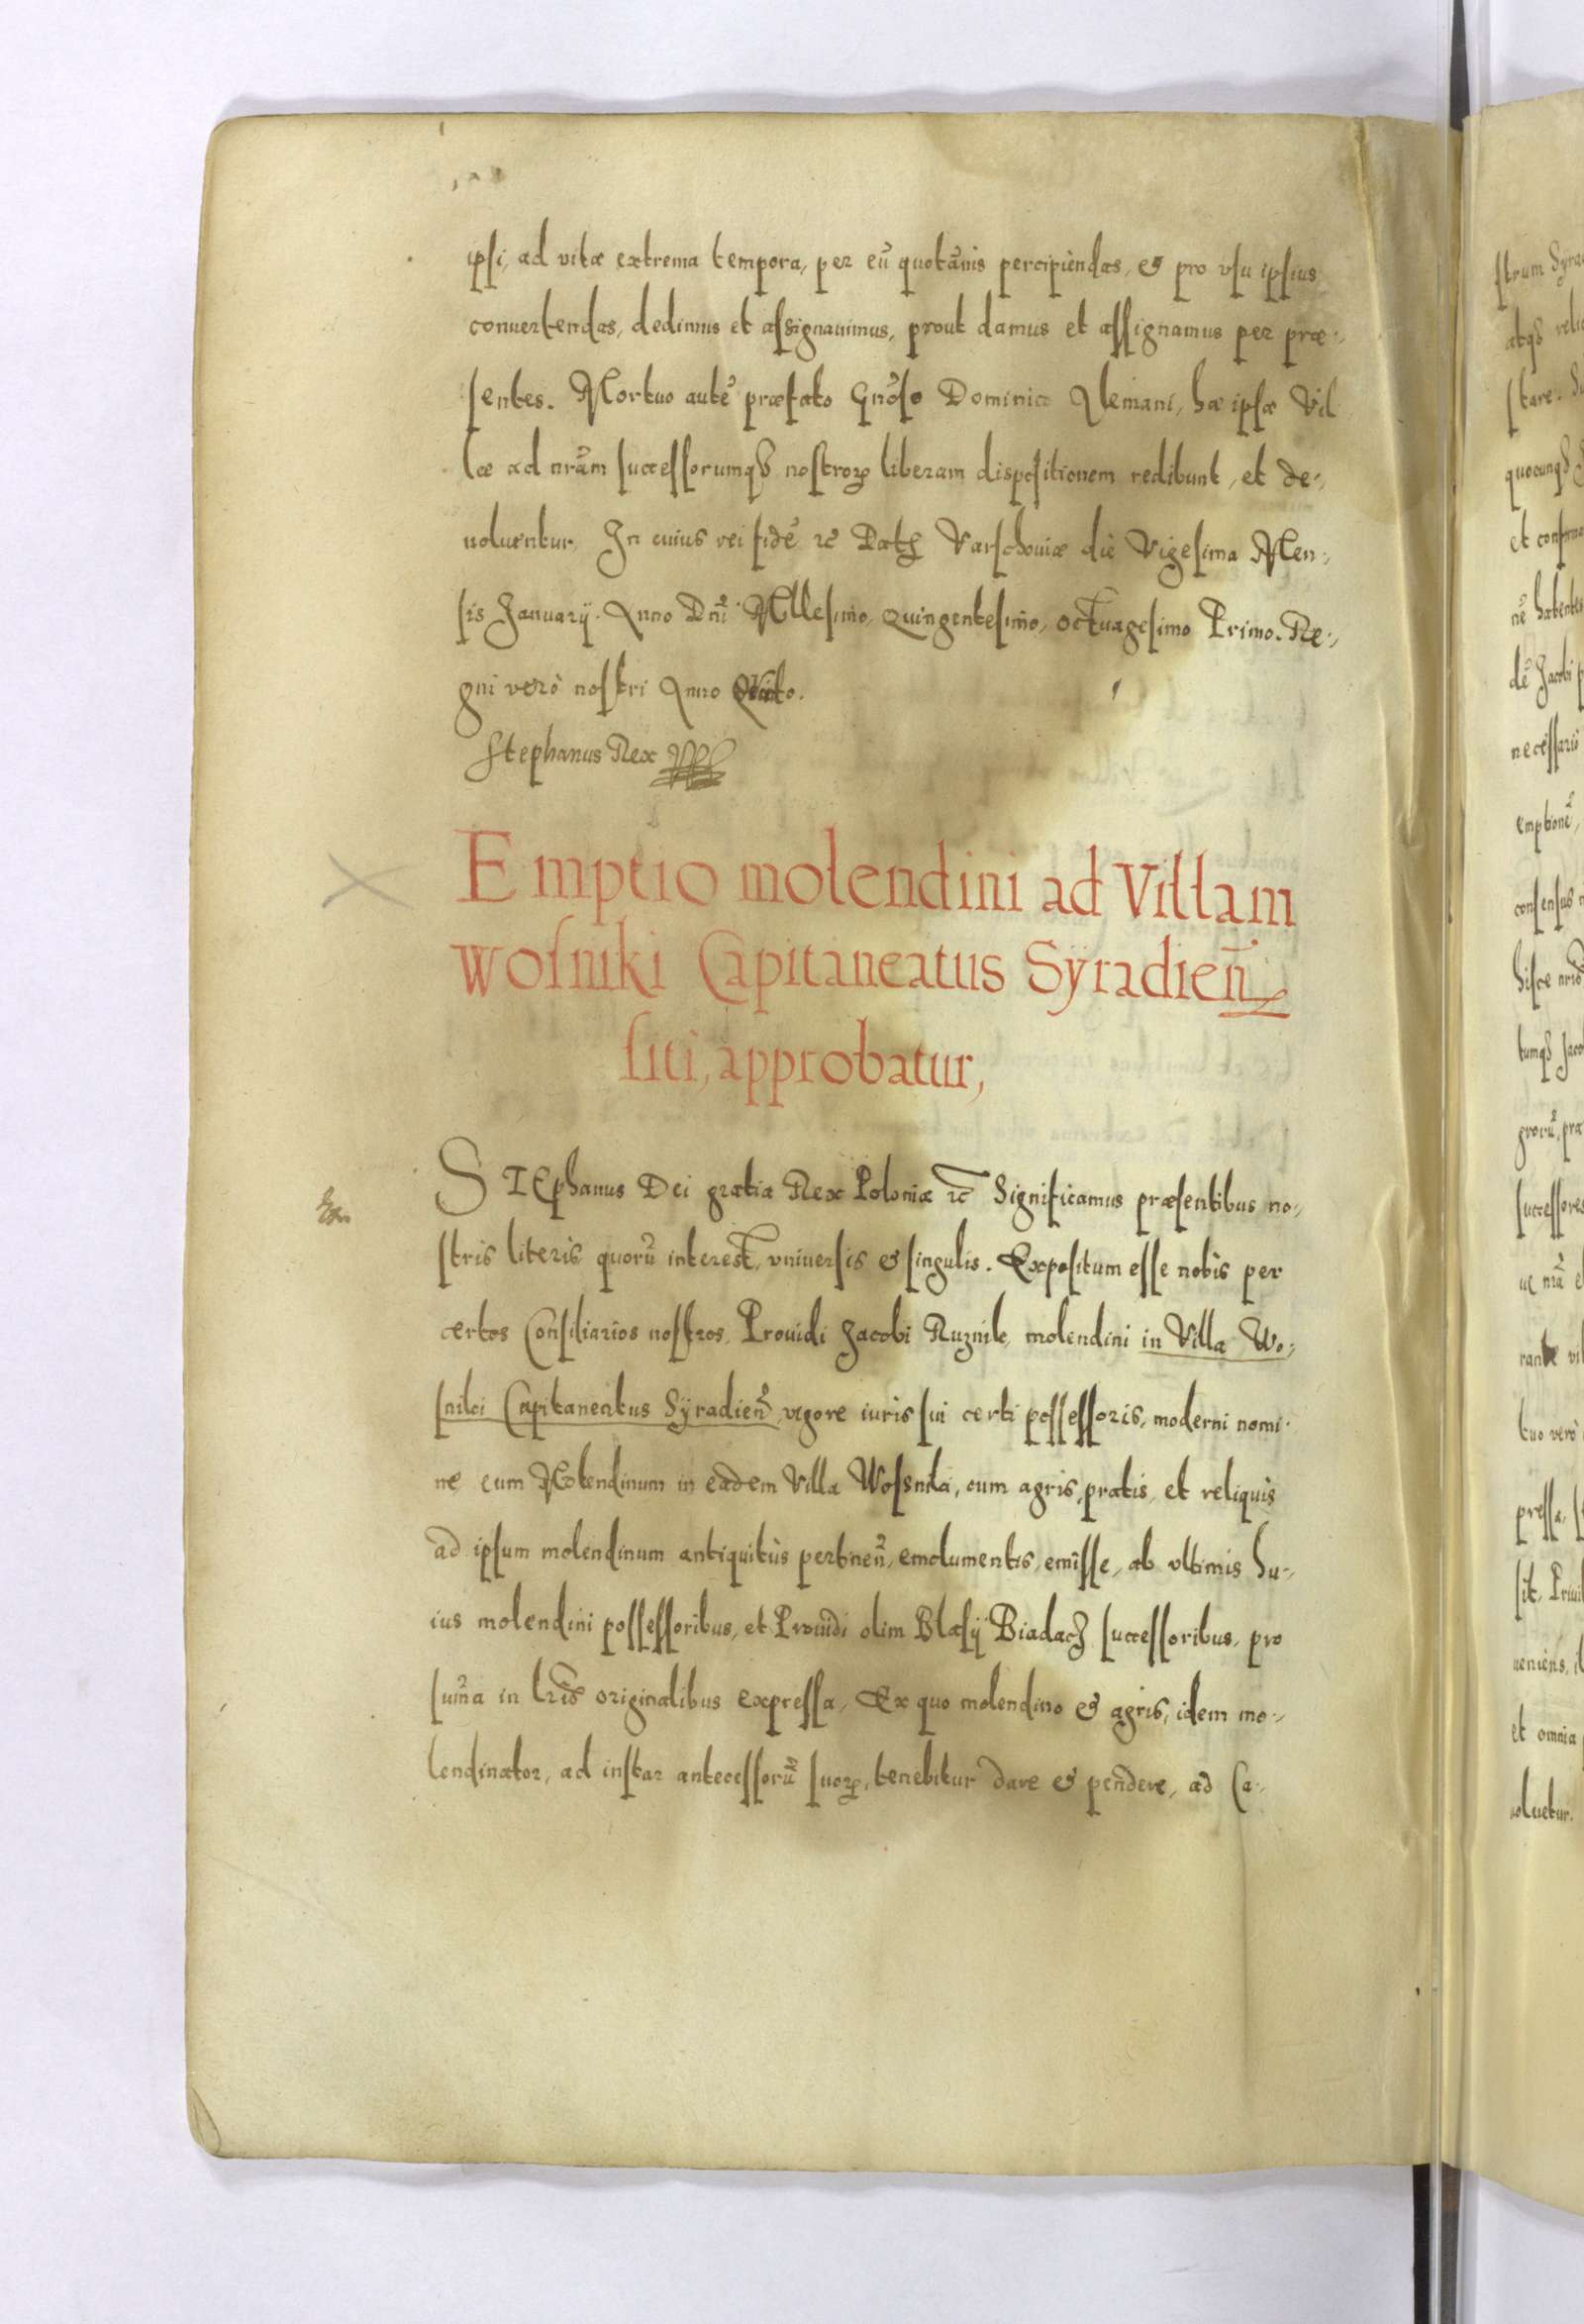 ipsi, ad vitæ extrema tempora, per eũ quotãnis percipiendas, & pro vsu ipsius
conuertendas, dedimus et assignauimus, prout damus et assignamus per præ-,
sentes. Mortuo autẽ præfato Gnõso Dominico Alemani, hæ ipsæ Vil
læ ad nrãm successorumqȝ nostroꝝ liberam dispositionem redibunt, et de-,
uoluentur, In cuius rei fidẽ ꝛc̃ Datꝭ Varschouiæ die Vigesima Men-,
sis Januarij. Anno Dnĩ Mllesimo, Quingentesimo, octuagesimo Primo. Re-,
gni verò nostri Anno
Stephanus Rex
Emptio molendini ad Villam
wosniki Capitaneatus Sÿradien̄
siti, approbatur,
STEphanus Dei gratia Rex Poloniæ ꝛc̃ Significamus præsentibus no-,
stris literis quorũ interest, vniuersis & singulis. Expositum esse nobis per
certos Consiliarios nostros, Prouidi Jacobi Ruznik, molendini in Villa Wo-,
sniki Capitaneatus Sÿradieñ, vigore iuris sui certi possessoris, moderni nomi-
ne eum Molendinum in eadem Villa Wosniki, cum agris, pratis, et reliquis
ad ipsum molendinum antiquitùs pertineñ, emolumentis, emisse, ab vltimis hu-,
ius molendini possessoribus, et Prouidi olim Blasij Biadacz successoribus, pro
sum̃a in lrĩs originalibus expressa, Ex quo molendino & agris, idem mo-,
lendinator, ad instar antecessorũ suoꝝ, tenebitur dare & pendere, ad Ca-,